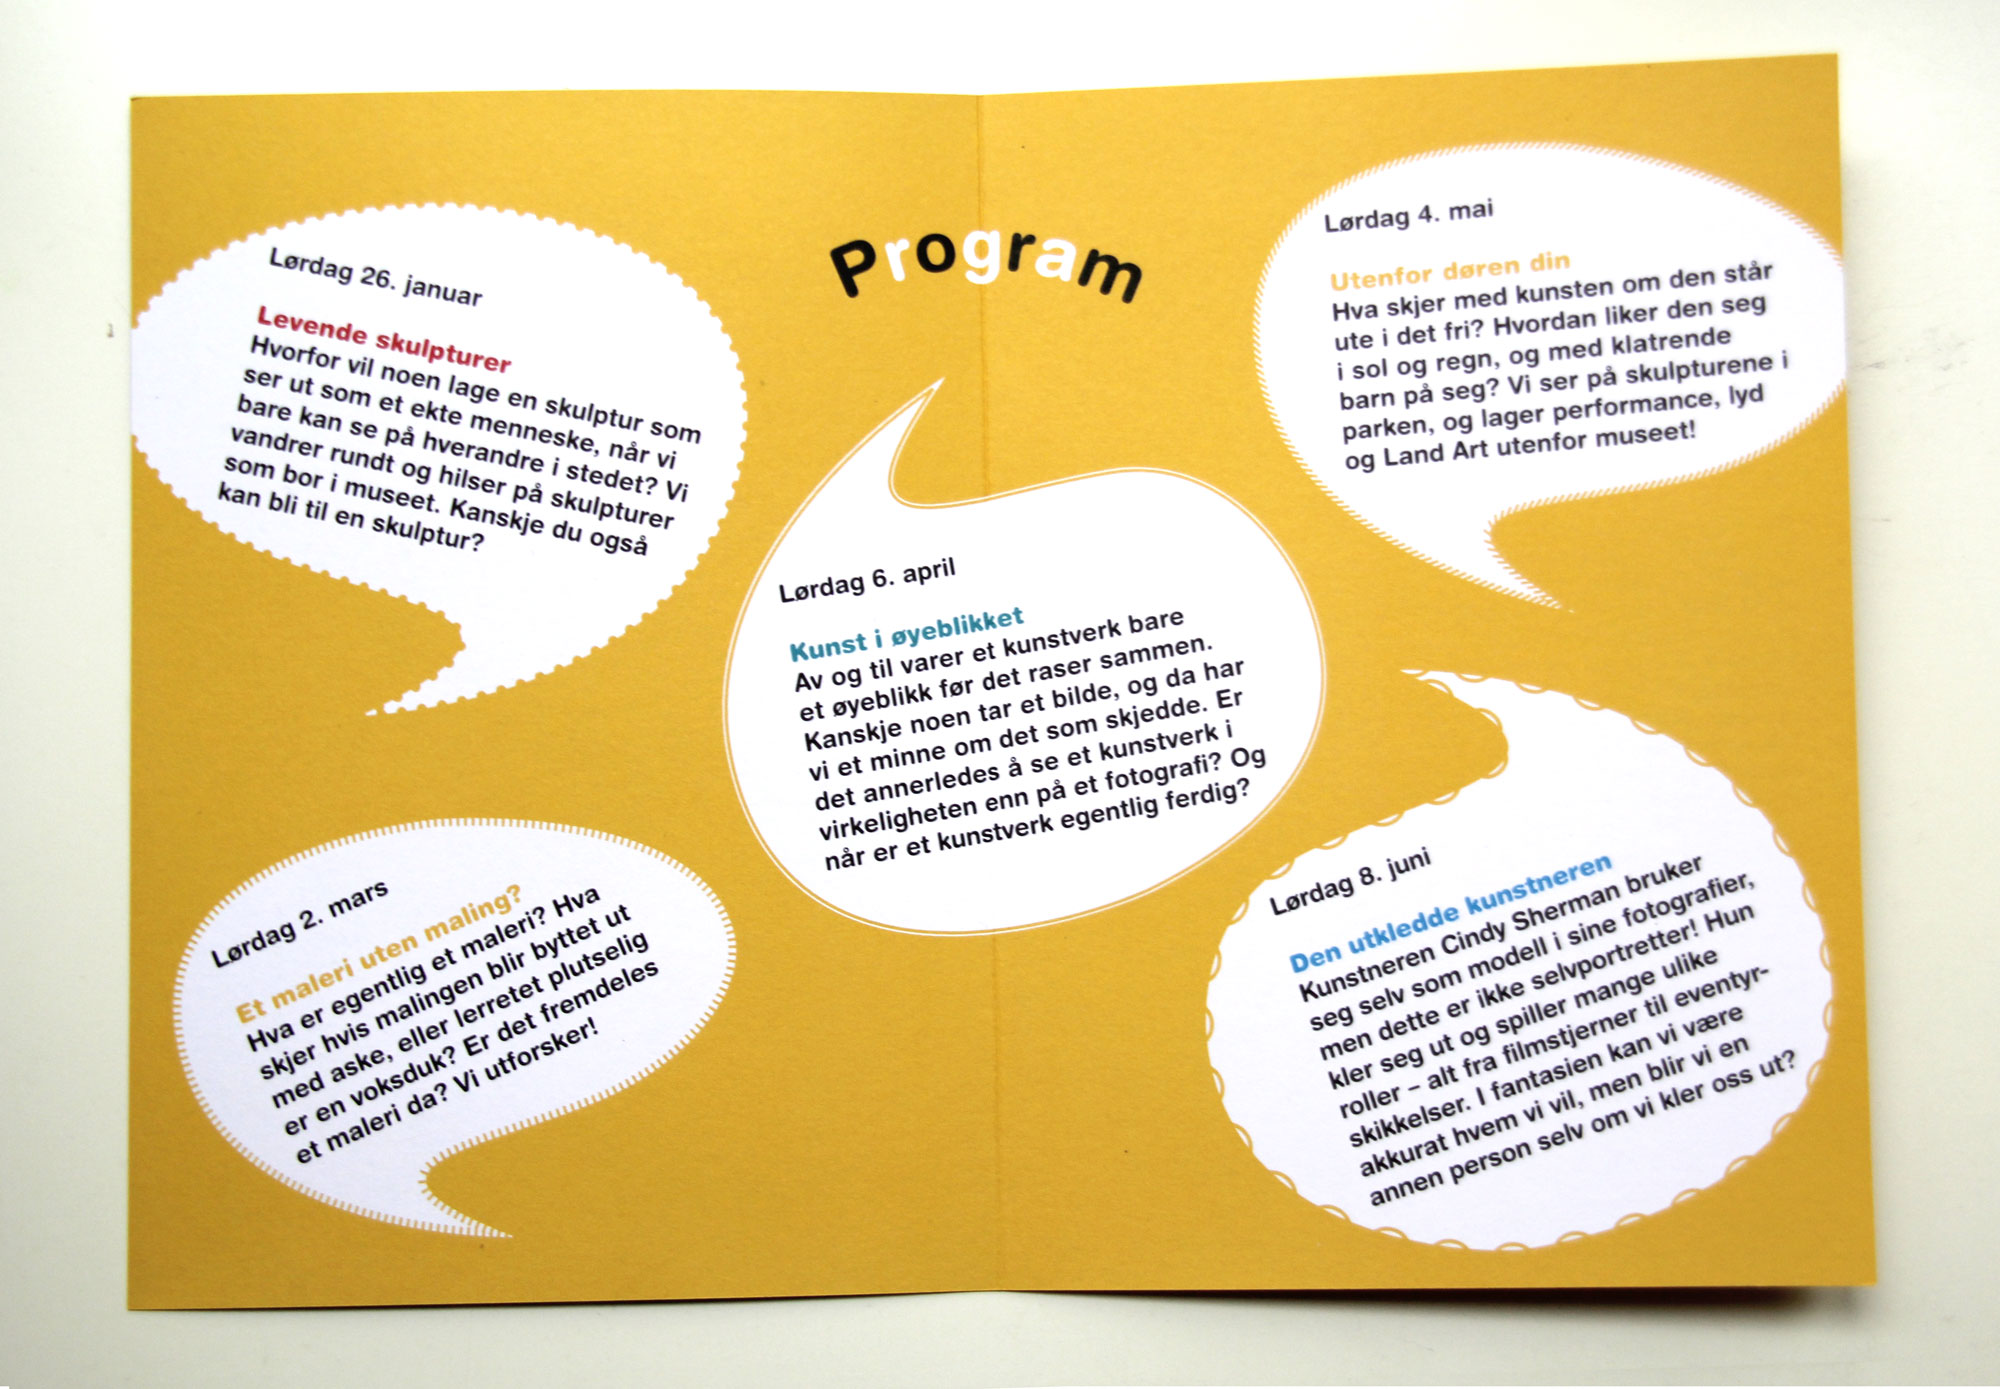 Program
Lørdag 26. januar
Levende skulpturer
Hvorfor vil noen lage en skulptur som
ser ut som et ekte menneske, når vi
bare kan se på hverandre i stedet? Vi
vandrer rundt og hilser på skulpturer
som bor i museet. Kanskje du også
kan bli til en skulptur?
Lørdag 2. mars
Et maleri uten maling?
Hva er egentlig et maleri? Hva
skjer hvis malingen blir byttet ut
med aske, eller lerretet plutselig
er en voksduk? Er det fremdeles
et maleri da? Vi utforsker!
Lørdag 6. april
Kunst i øyeblikket
Av og til varer et kunstverk bare
et øyeblikk før det raser sammen.
Kanskje noen tar et bilde, og da har
vi et minne om det som skjedde. Er
det annerledes å se et kunstverk i
virkeligheten enn på et fotografi? Og
når er et kunstverk egentlig ferdig?
Lørdag 4. mai
Utenfor døren din
Hva skjer med kunsten om den står
ute i det fri? Hvordan liker den seg
i sol og regn, og med klatrende
barn på seg? Vi ser på skulpturene i
parken, og lager performance, lyd
og Land Art utenfor museet!
Lørdag 8. juni
Den utkledde kunstneren
Kunstneren Cindy Sherman bruker
seg selv som modell i sine fotografier,
men dette er ikke selvportretter! Hun
kler seg ut og spiller mange ulike
roller – alt fra filmstjerner til eventyr-
skikkelser. I fantasien kan vi være
akkurat hvem vi vil, men blir vi en
annen person selv om vi kler oss ut?